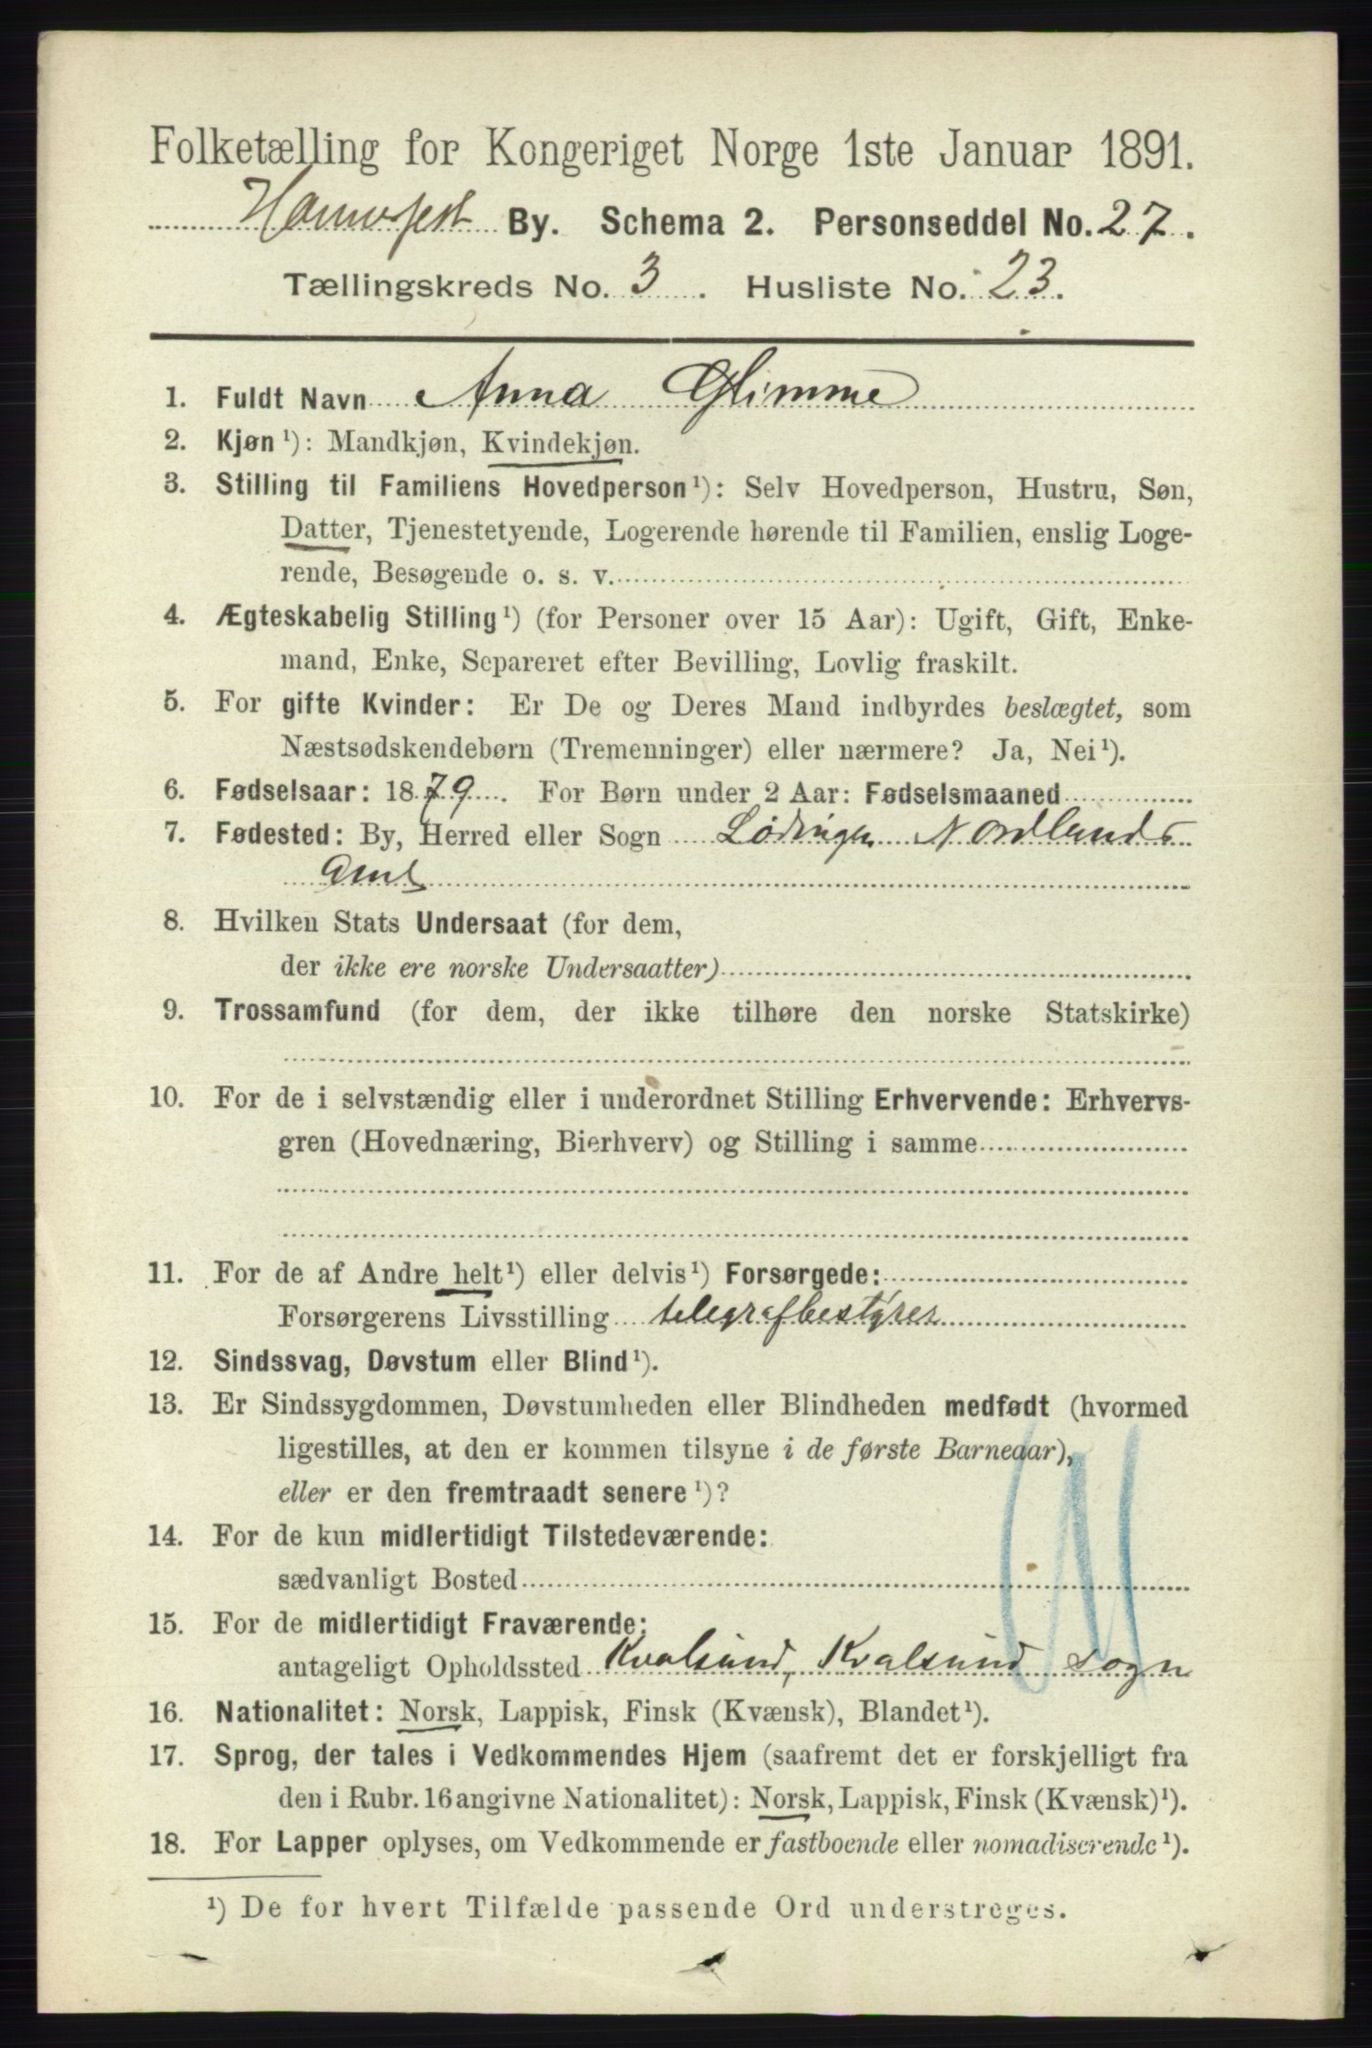 Folketælling for Kongeriget Norge 1ste Januar 1891.
Hammerfest By. Schema 2. Personseddel No. 27.
Tællingskreds No. 3. Husliste No. 23.
1. Fuldt Navn Anna Glimme
2. Kjøn ¹): Mandkjøn, Kvindekjøn.
3. Stilling til Familiens Hovedperson ¹): Selv Hovedperson, Hustru, Søn,
Datter, Tjenestetyende, Logerende hørende til Familien, enslig Loge-
rende, Besøgende o. s. v.
4. Ægteskabelig Stilling ¹) (for Personer over 15 Aar): Ugift, Gift, Enke-
mand, Enke, Separeret efter Bevilling, Lovlig fraskilt.
5. For gifte Kvinder: Er De og Deres Mand indbyrdes beslægtet, som
Næstsødskendebørn (Tremenninger) eller nærmere? Ja, Nei ¹).
6. Fødselsaar: 1879. For Børn under 2 Aar: Fødselsmaaned
7. Fødested: By, Herred eller Sogn Lødingen Nordlands
Amt
8. Hvilken Stats Undersaat (for dem,
der ikke ere norske Undersaatter)
9. Trossamfund (for dem, der ikke tilhøre den norske Statskirke)
10. For de i selvstændig eller i underordnet Stilling Erhvervende: Erhvervs-
gren (Hovednæring, Bierhverv) og Stilling i samme
11. For de af Andre helt ¹) eller delvis ¹) Forsørgede:
Forsørgerens Livsstilling telegrafbestyrer
12. Sindssvag, Døvstum eller Blind ¹).
13. Er Sindssygdommen, Døvstumheden eller Blindheden medfødt (hvormed
ligestilles, at den er kommen tilsyne i de første Barneaar),
eller er den fremtraadt senere ¹)?
14. For de kun midlertidigt Tilstedeværende:
sædvanligt Bosted
15. For de midlertidigt Fraværende:
antageligt Opholdssted Kvalsund, Kvalsund Sogn
16. Nationalitet: Norsk, Lappisk, Finsk (Kvænsk), Blandet ¹).
17. Sprog, der tales i Vedkommendes Hjem (saafremt det er forskjelligt fra
den i Rubr. 16 angivne Nationalitet): Norsk, Lappisk, Finsk (Kvænsk) ¹).
18. For Lapper oplyses, om Vedkommende er fastboende eller nomadiserende ¹).
¹) De for hvert Tilfælde passende Ord understreges.